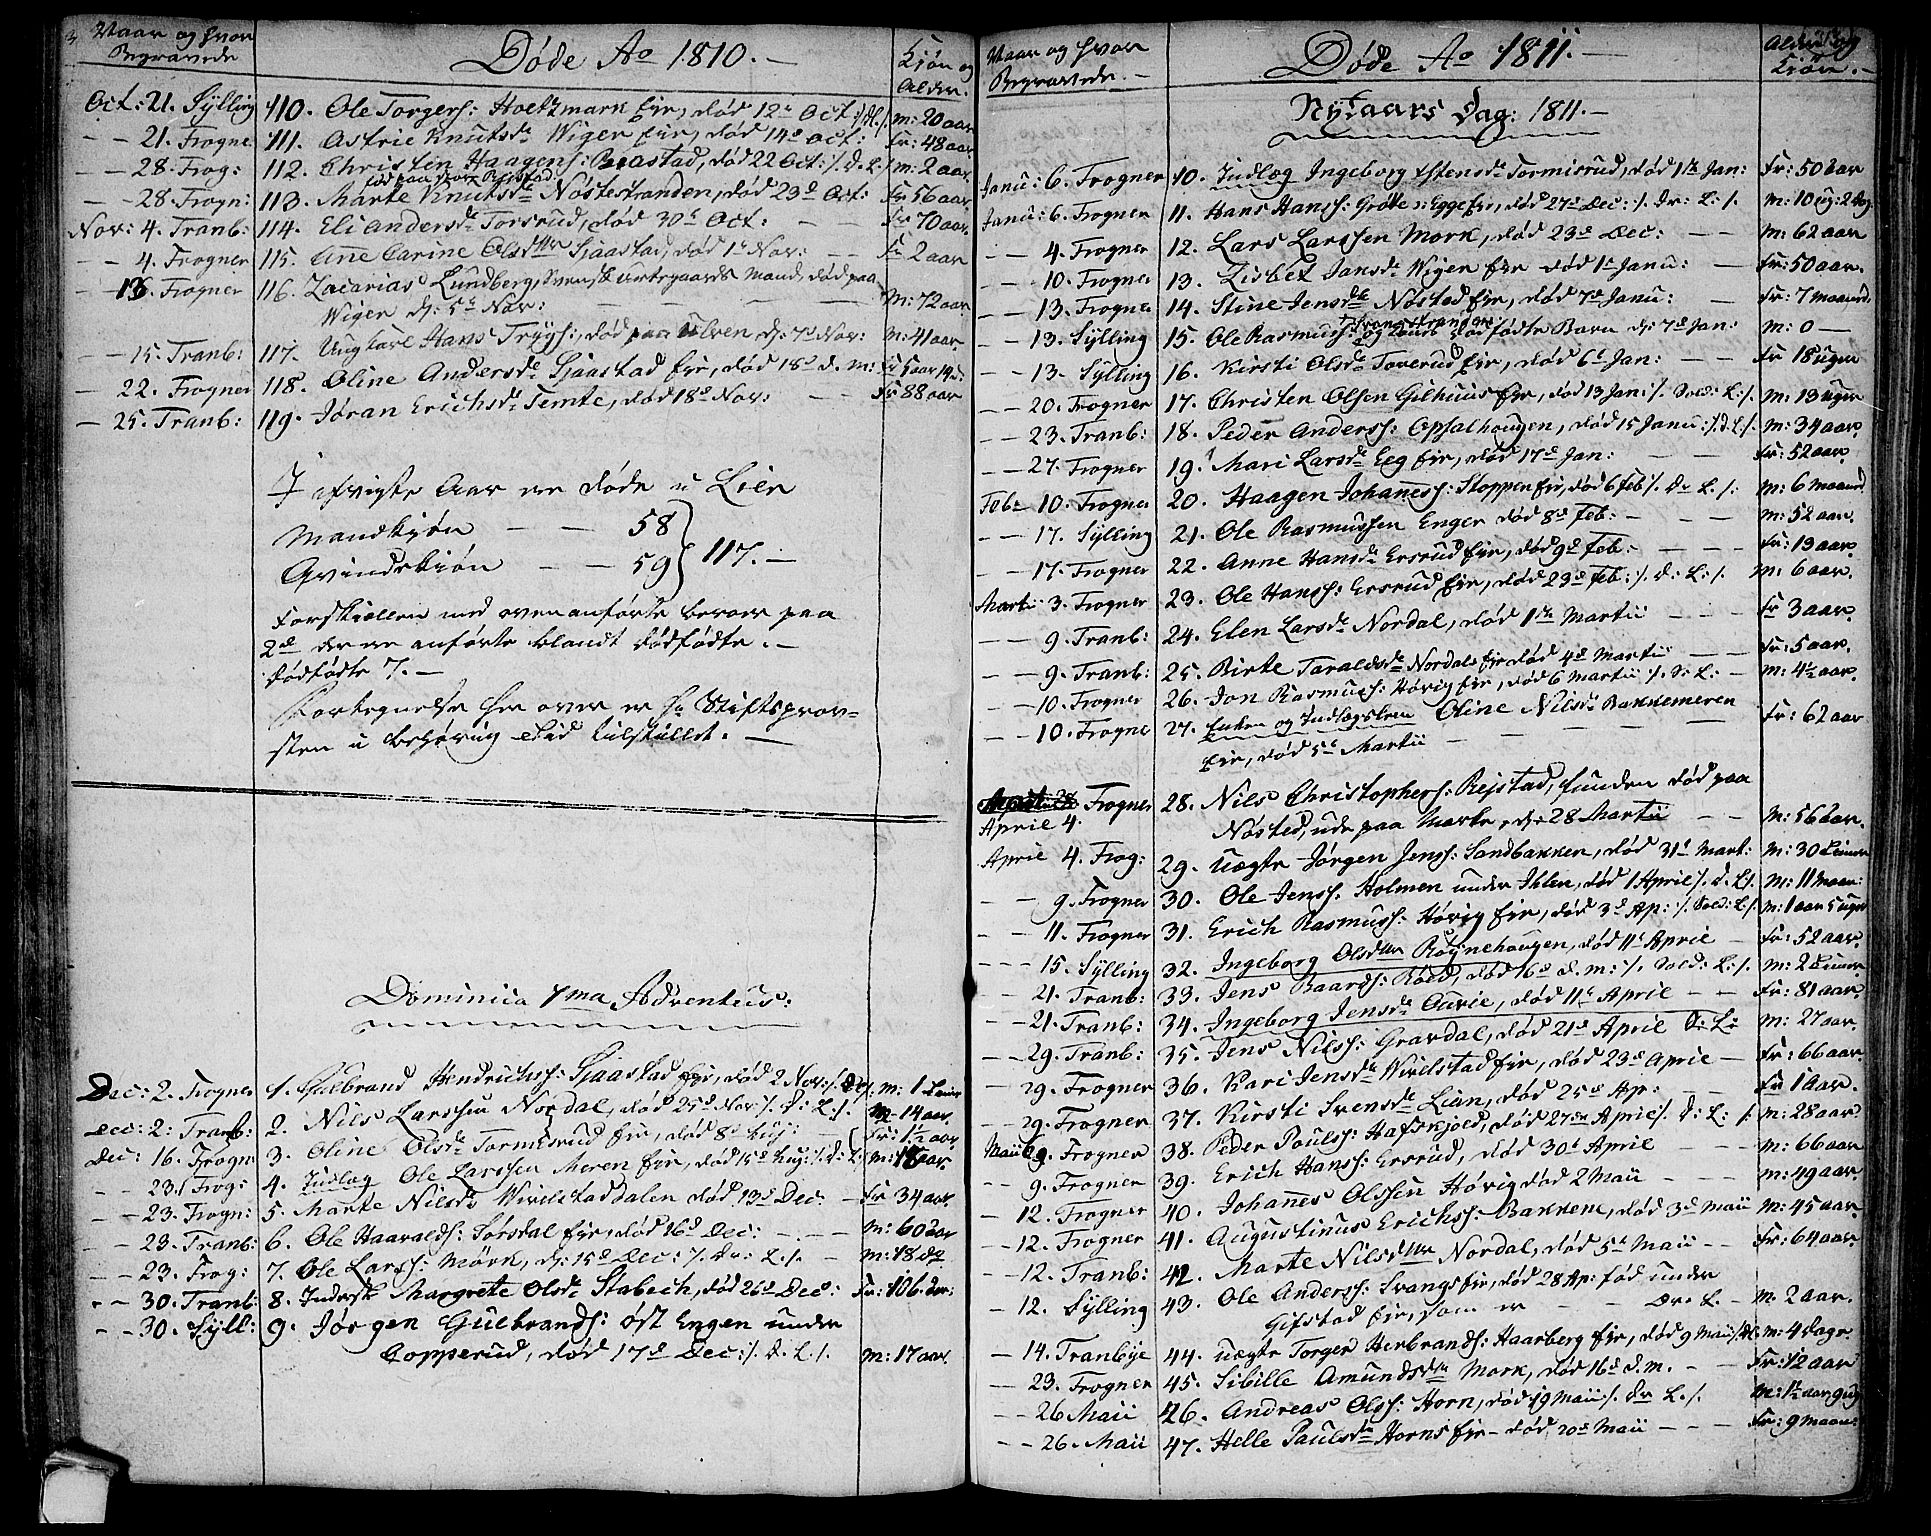 Naar og hvor
Begravede
Døde Ao 1810. –
Kiøn og
Alder.
Oct: 21. Sylling 110. Ole Torgers: Holtzmark Eie, død 12te Oct: /: d. L: /. m: 20 aar
– – 21. Frogne 111. Astrie Knutsdr Wiger Eie, død 14de Oct: Fr: 48 aar
– – 28. Frog: 112. Christen Haagens: Bejstad, død 22 Oct: /. d. L: /. m: 2 aar.
– – 28. Frogn: 113. Marte Knutsdr Nøstestranden, død 23de Oct: Fr 56 aar
Nov: 4. Tranb: 114. Eli Andersdr Torsrud, død 30te Oct: – – Fr 70 aar
– 4. Frogner 115. Ane Carine Olsdtr Sjaastad, død 1te Nov: – Fr 2 aar
– 15. Frogner 116. Zacarias Lundberg, Svensk Urtegaards Mand, død paa
Wiger d: 5te Nov: – – – M: 72 aar
– 15. Tranb: 117. Ungkarl Hans Trygs:, død paa Ulven d: 7de Nov: m: 41 aar.
– 22. Frogner 118. Oline Andersdr Sjaastad Eie, død 18de d. m: Fr 5 aar 14 u:
– 25. Tranb: 119. Jøran Erichsdr Temte, død 18de Nov: – – Fr 88 aar
I afvigte Aar ere døde i Lier
Mandkjøn – – 58
Qvindekiøn – – 59 } 117. –
Forskiellen med ovenanførte beroer paa
2de der ere anførte blandt dødfødte. –
dødfødte 7. –
Fortegnelse her over er Hr Stiftsprov=
sten i behørig Tid tilstillet. –
Dominica 1ma Adventus:
Dec: 2. Frogner 1. Gulbrand Hendrichs: Sjaastad Eie, død 2 Nov: /: d. L: /. m: 1
Dec: 2: Tranb: 2. Nils Larssen Nordal, død 25de Nov: /. d: L: /. m: 14 aar
Dec: 16. Frogn: 3. Oline Olsdr Tormisrud Eie, død 8de – Fr: 1½ aar
– – 23. Frog: 4. Indlæg Ole Larssen Meren Eie, død 15de /. d: L: m: 18 aar
– – 23. Frogn: 5. Marte Nilsdr Wivelstaddalen død 13de Dec: – Fr 34 aar
– – 23. Tranb: 6. Ole Haavalds: Sørsdal Eie, død 16de Dec: – – m: 60 aar
– – 23. Frog: 7. Ole Larss: Mørk, d: 15de Dec: /. Dr: L: /. – m: 18
– – 30. Tranb: 8. Inderst Margrete Olsdr Stabech, død 26de Dec: Fr: 106
– – 30. Syll: 9. Jørgen Gulbrands: Øst Engen under
Copperud, død 17de Dec: /. d. L. /. m: 17 aar.
Naar og hvor
Begravede. –
Døde Ao 1811. –
Alder og
Kiøn. –
Nytaars Dag: 1811. –
Janu: 6. Frogner 10. Indlæg Ingeborg Estensdr Tormisrud, død 1te Jan: Fr: 50 aar
Janu: 6. Frogner 11. Hans Hans: Grøte v: Egge Eie, død 27de Dec: /. Dr: L: /. m: 10 ug: 2 Dag
– – 4. Frogner 12. Lars Larssen Mork, død 23de Dec: – – m: 62 aar
– – 10. Frogner 13. Lisbet Jansdr Wiger Eie død 1te Janu: – Fr: 50 aar.
– – 13. Frogner 14. Stine Jensdr Nøsted Eie, død 7de Janu: – Fr: 7 maaned
– – 13. Sylling 15. Ole Rasmuss: Svangstrand Eie dødfødte Barn d: 7de Jan: m: 0 –
– – 13. Sylling 16. Kirsti Olsdr Toverud Eie, død 6te Jan: – – Fr 18 uger
– – 20. Frogner 17. Christen Olsen Gilhuus Eie, død 13 Jan: /. Sold: L: /. m: 13 uger
– – 23. Tranb: 18. Peder Anders: Opsalhougen, død 15 Janu: /: d. L: /. m: 34 aar
– – 27. Frogner 19. Mari Larsdr Eeg Eie, død 17de Jan: – – Fr: 52 aar.
Feb: 10. Frogner 20. Haagen Johaness: Stoppen Eie, død 6 Feb /. Dr L: /. m: 6 maaned
– – 17. Sylling 21. Ole Rasmussen Enger død 8de Feb: – – m: 52 aar.
– – 17. Frogner 22. Anne Hansdr Ersrud Eie, død 9de Feb: – – – Fr: 13 aar.
Martii 3. Frogner 23. Ole Hans: Ersrud Eie, død 23de Feb: /. d: L: /. m: 6 aar.
– – 9. Tranb: 24. Elen Larsdr Nordal, død 1te Martii – – Fr 3 aar.
– – 9. Tranb: 25. Birte Taraldsdr Nordals Eie død 4de Martii – – Fr: 5 aar.
– – 10. Frogner 26. Jon Rasmus: Høvig Eie, død 6 Martii /. D: L: – m: 4½ aar.
– – 10. Frogne 27. Enken og Indlægslem Oline Nilsdr Bakkemeren
Eie, død 5te Martii – – – Fr: 62 aar
April 4. Frogner 28. Nils Christophers: Rejstad, funden død paa
Nøsted, ude paa Marken d: 28 Martii – – m: 56 aar.
April 4. Frog: 29. uægte Jørgen Jens: Sandbakken, død 31te Mart: m: 30
– – 9. Frogner 30. Ole Jens: Holmen under Ihlen, død 1 April /. d. L /. m: 11 maan:
– – 11. Frogner 31. Erich Rasmus: Høvig Eie, død 3de Ap: /. Sold: L: /. m: 1 aar 5 uger
– – 15. Sylling 32. Ingeborg Olsdtr Røynehougen, død 11te April – Fr: 52 aar.
– – 21. Tranb: 33. Jens Baards: Røed, død 16de d. m: /. Sold: L: /. m: 2
– – 21. Tranb: 34. Ingeborg Jensdr Ourie, død 11te April – – Fr: 81 aar.
– – 29. Tranb: 35. Jens Nils: Gravdal, død 21de April D: L: m: 27 aar.
– – 29. Frogner 36. Kari Jensdr Wivelstad Eie, død 23de April – Fr: 66 aar.
– – 29. Frogner 37. Kirsti Svensdr Lian, død 25de Ap: – Fr 1 aar.
Maii 9. Frogner 38. Peder Pouls: Hafskjold, død 27de April /. d: L: /. m: 28 aar.
– – 9. Frogner 39. Erich Hans: Ersrud, død 30te April – m: 66 aar.
– – 12. Frogner 40. Johanes Olssen Høvig død 2 Maii – – m: 49 aar.
– – 12. Frogner 41. Augustinus Erichs: Bakken, død 3de Maii m: 45 aar.
– – 12. Tranb: 42. Marte Nilsdtr Nordal, død 5te Maii – – Fr: 64 aar.
– – 12. Sylling 43. Ole Anders: Svangs Eie, død 28 Ap: fød under
Gifstad Eie, som er – – Dr. L. – m 2 aar.
– – 14. Tranbye 44. uægte Torger Herbrands: Haarberg Eie, død 9 Maii /. d L: m: 4 dage.
– – 23. Frogner 45. Sibille Amundsdtr Mork, død 16de d. m. – – Fr: 12 aar
– – 26 Maii 46. Andreas Ols: Horn, død 19 Maii /. Dr L. /. m: 1½ aar 9 ug
– – 26. Maii 47. Helle Paulsdr Horns Eie – død 20de Maii – – Fr: 9 maan: